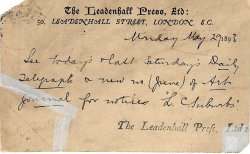 The Leadenhall Press, Ltd:
50, LEADENHALL STREET, LONDON, E.C.
Monday May 29, 1893
See today's & last Saturday's Daily
Telegraph & new no (June) of Art
Journal for notices
The Leadenhall Press, Ltd: